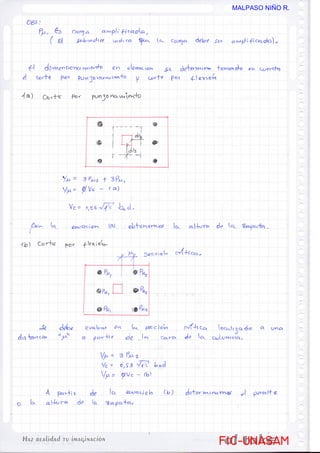 MALPASO NIÑO R.
OBS:
Pu. Es carga amplificada,
( El subíndice indica que la carga debe ser amplificada).
El dimensionamiento en elevación se determina tomando en cuenta
el corte por punzonamiento y corte por flexión
1a) Corte por punzonamiento
d/2
d/2
Vu = 3Pu2 + 3Pu1
Vu = ØVc — (a)
Vc = 1,06 √f'c bo d.
Con la ecuación (a) obtenemos la altura de la zapata.
1b) Corte por flexión
Sección crítica.
Pu1 Pu2
Pu1 Pu2
Pu1 Pu2
Se debe evaluar en la sección crítica localizada a una
distancia "μ" a partir de la cara de la columna.
Vu = 3 Pu2
Vc = 0,53 √f'c b×d
Vu = ØVc — (b)
A partir de la ecuación (b) determinamos el peralte
o la altura de la zapata.
Haz realidad tu imaginación
FIC-UNASAM